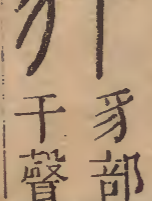 豸部
干聲